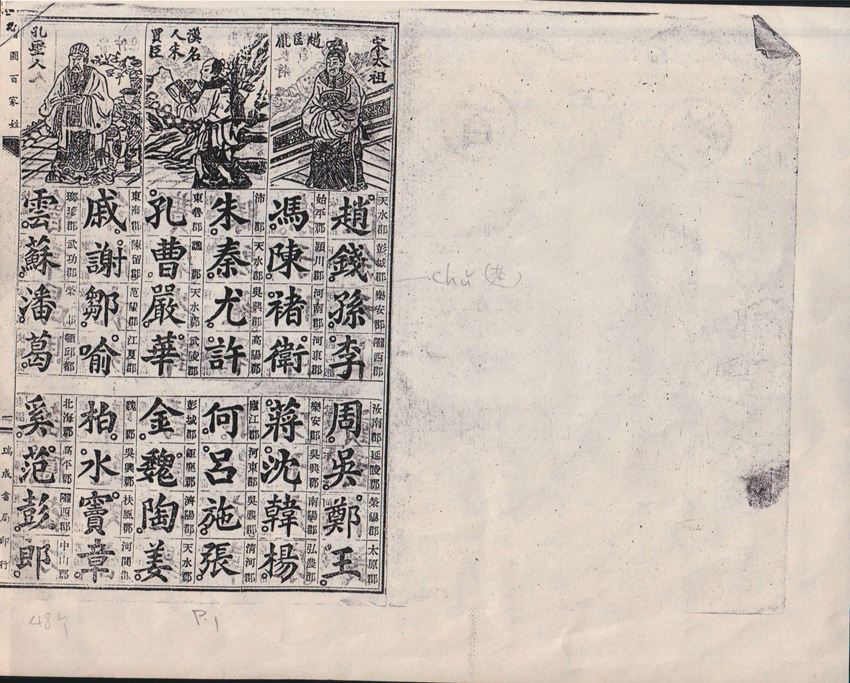 宋太祖
趙匡胤
漢名
人朱
買臣
孔聖人
天水郡 彭城郡 樂安郡 隴西郡
趙錢孫李
始平郡 潁川郡 河南郡 河東郡
馮陳褚衛
沛郡 天水郡 吳興郡 高陽郡
朱秦尤許
東魯郡 譙郡 天水郡 武陵郡
孔曹嚴華
東海郡 陳留郡 范陽郡 江夏郡
戚謝鄒喻
瑯琊郡 武功郡 頓邱郡
雲蘇潘葛
汝南郡 延陵郡 滎陽郡 太原郡
周吳鄭王
樂安郡 吳興郡 南陽郡 弘農郡
蔣沈韓楊
廬江郡 河東郡 吳興郡 清河郡
何呂施張
彭城郡 鉅鹿郡 濟陽郡 天水郡
金魏陶姜
魏郡 吳興郡 扶風郡 河間郡
柏水竇章
北海郡 高平郡 隴西郡 中山郡
奚范彭郎
國百家姓
一
瑞成書局印行
chǔ
P.1